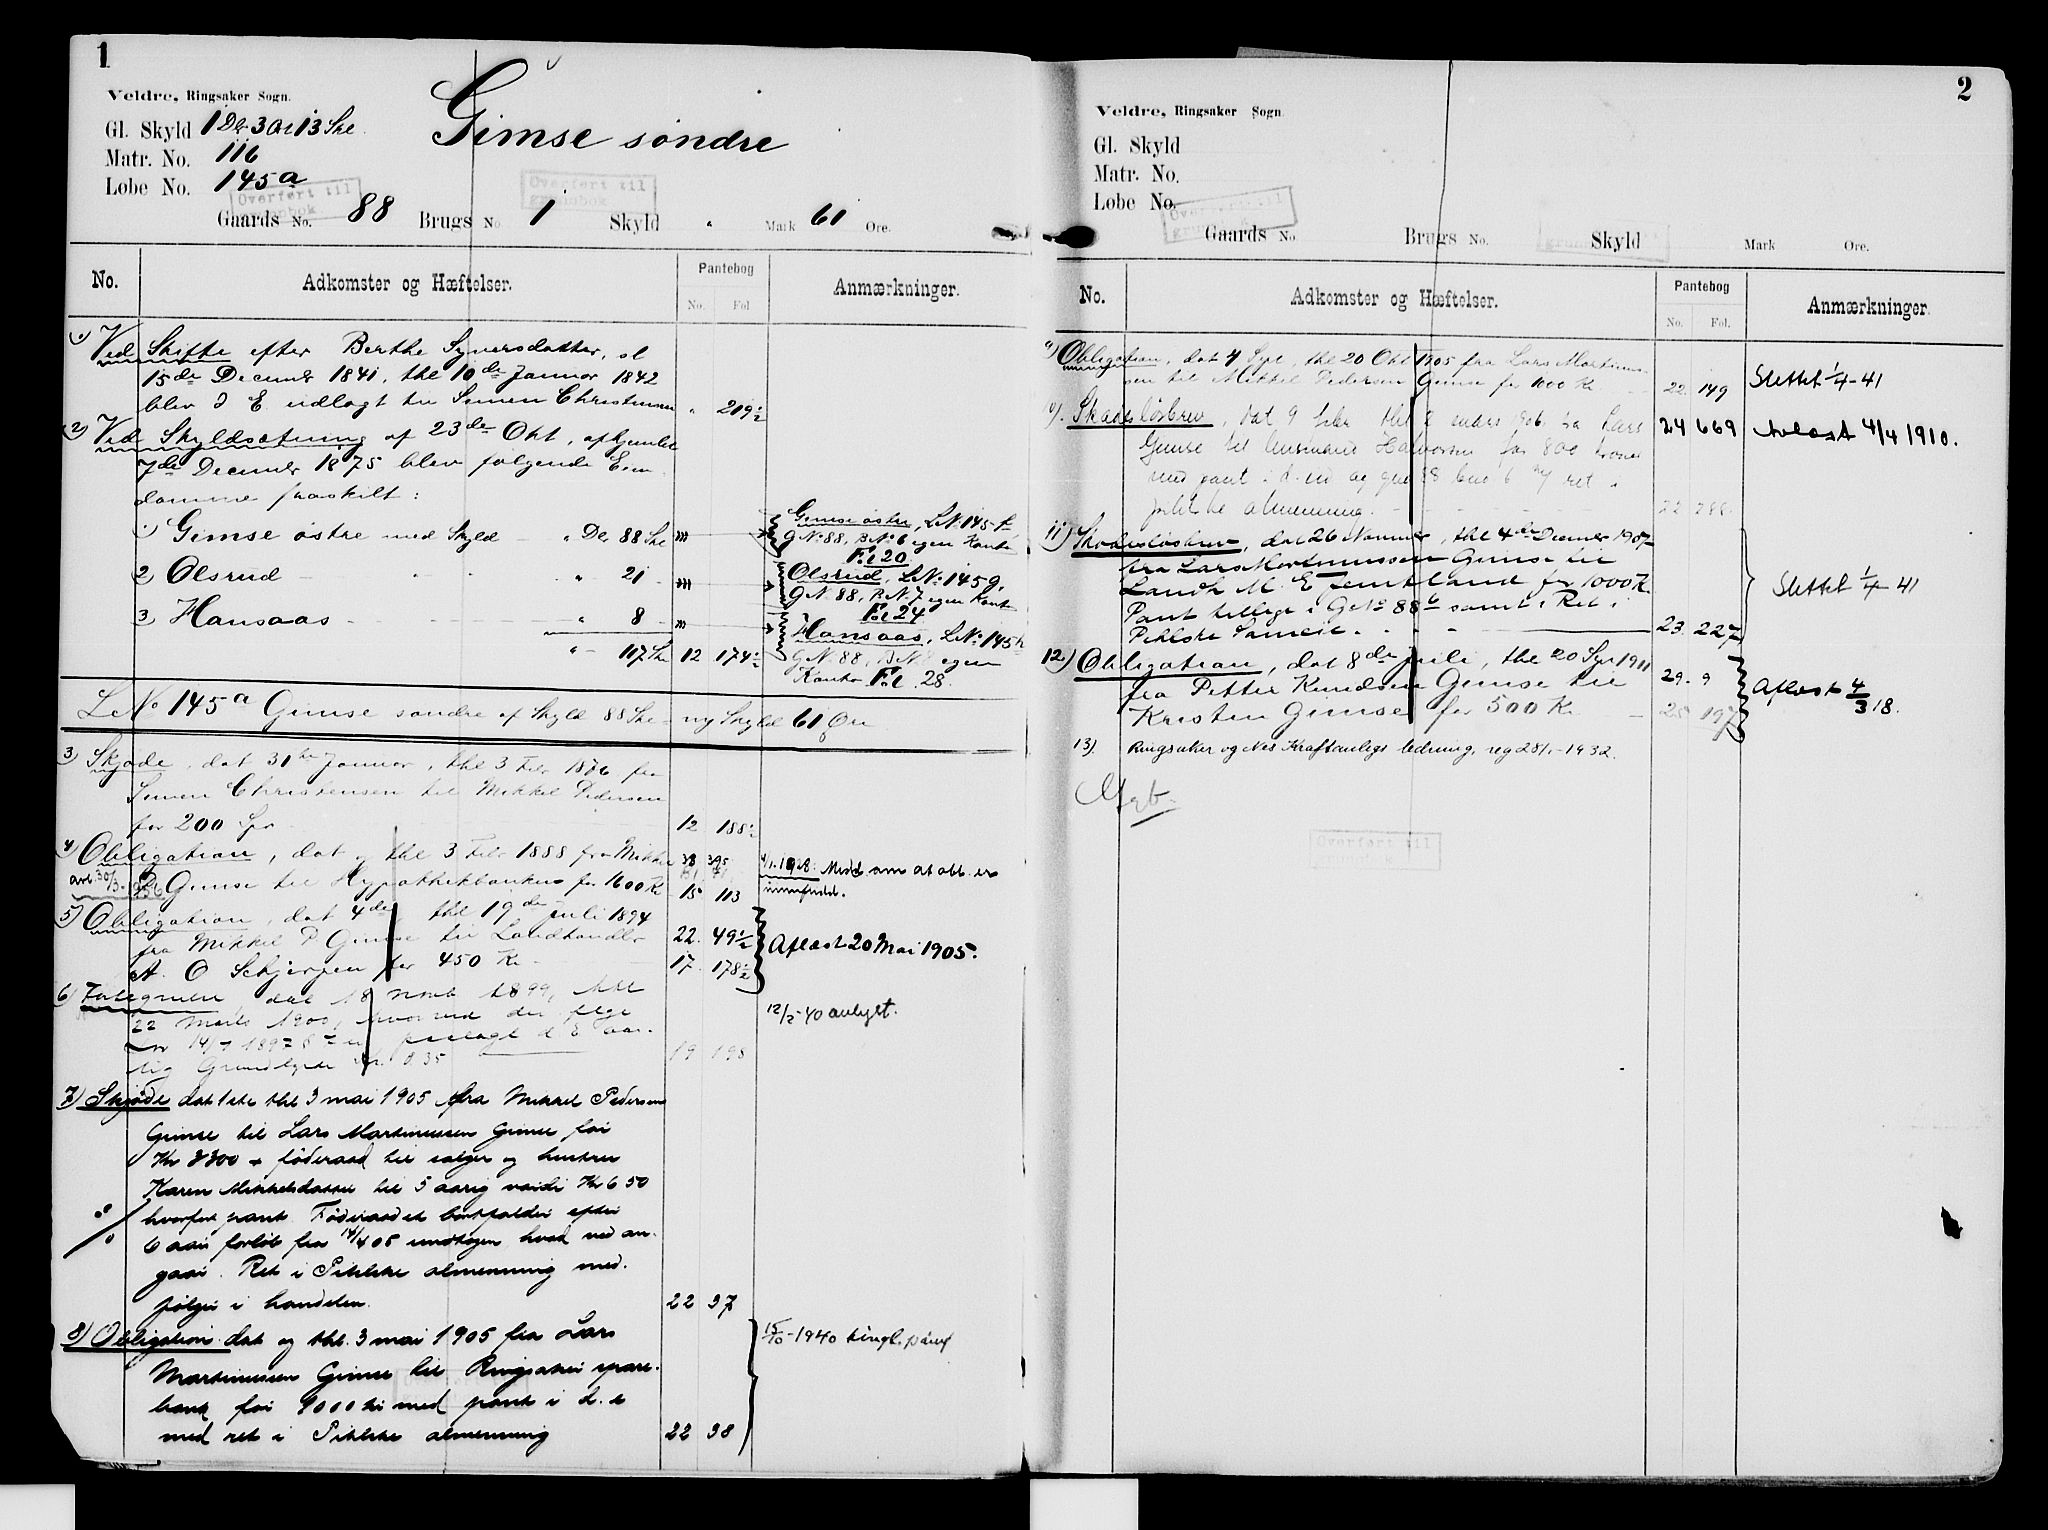 1
Veldre, Ringsaker Sogn.
Gl. Skyld 1 Dr 3 Ort 13 Ske.
Matr. No. 116
Løbe No. 145a
Gimse søndre
Overført til grundbok
Overført til grundbok
Gaards No. 88 Brugs No. 1 Skyld " Mark 61 Øre.
No. Adkomster og Hæftelser. Pantebog No. Fol Anmærkninger.
1) Ved Skifte efter Berthe Syversdatter, sl
15de Decemr 1841, thl 10de Januar 1842
blev d E. udlagt til Simen Christensen " 219½
2) Ved Skyldsætning af 23de Okt, afhjemlet
7de Decemr 1875 blev følgende Eien-
domme fraskilt:
1) Gimse østre med Skyld " Dr 88 Ske
Gimse østre, LNo 145 f
GNo 88, BNo 6 egen Konto
Fol 20
2) Olsrud " 21
Olsrud, LNo 145 g,
GNo 88, BNo 7 egen Konto
Fol 24
3) Hansaas " 8
Hansaas, LNo 145 h
" 117 Ske 12 174½
GNo 88, BNo egen
Konto Fol. 28.
LNo 145a Gimse søndre af Skyld 88 Ske = ny Skyld 61 Øre
3) Skjøde, dat 31te Januar, thl 3 Febr 1876 fra
Simen Christensen til Mikkel Pedersen
for 200 Spr 12 188½
4) Obligation, dat og thl 3 Febr 1888 fra Mikkel 38 395
avl. 30/3-1956 P. Gimse til Hypothekbanken for 1600 Kr 15 113
4/1.1928: Medd om at obl. er
innfridd.
5) Obligation, dat 4de, thl 19de Juli 1894
fra Mikkel P Gimse til Landhandler 22. 49½
A. O Schjerpen for 450 Kr 17. 178½
Aflæst 20 Mai 1905.
6) dat 18 Novb 1899, thl
22 Marts 1900, hvorved der
14/7 1897 d E aar-
lig Grundbyrde 0.35 19 198
12/2-40 avlyst.
7) Skjøde dat 1ste thl 3 mai 1905 fra Mikkel Pedersen
Gimse til Lars Martinussen Gimse for
Kr 3300 + føderaad til sælger og hustru
Karen Mikkelsdatter til 5 aarig værdi Kr 650
hvorfor pant. Føderaadet bortfalder efter
6 aars forløb fra 14/4 05 undtagen hvad ved an-
gaar. Ret i Pihlske almenning med-
følger i handelen. 22 37
8) Obligation dat og thl. 3 mai 1905 fra Lars
Martinussen Gimse til Ringsaker spare-
bank for 9000 kr med pant i d. e
med ret i Pihlske almenning 22 38
15/10-1940 tingl. påtegn
2
Veldre, Ringsaker Sogn.
Gl. Skyld
Matr. No.
Løbe No.
Overført til grundbok
Gaards No. Brugs No. Skyld Mark Øre.
No. Adkomster og Hæftelser. Pantebog No. Fol. Anmærkninger.
9) Obligation, dat 4 Spt, thl 20 Okt 1905 fra Lars Martinus-
sen til Mikkel Pedersen Gimse for 1000 Kr 22. 149
Slettet 1/4-41
10). Skadesløsbrev, dat 9 febr thl 2 mars 1906 fra Lars 24 669
Avlæst 4/4 1910.
Gimse til Halvorsen for 800 kroner
med pant i d. ed og gno 88 bno 6 og ret i
pihlske almenning. 22 288.
11) Skadesløsbrev, dat 26 November, thl 4de Decemr 1907
fra Lars Martinussen Gimse til
Landh M. E Jemtland for 1000 Kr.
Slettet 1/4-41
Pant tillige i GNo 88 6 samt i Ret i
Pihlske Sameie. 23. 227
12) Obligation, dat 8de Juli, thl 20 Spt 1911
fra Petter Knudsen Gimse til 29. 9
Aflæst 4/3 18.
Kristen Gimse for 500 Kr. 25 197
13). Ringsaker og Nes Kraftanlegs ledning, reg 28/1-1932.
Overført til